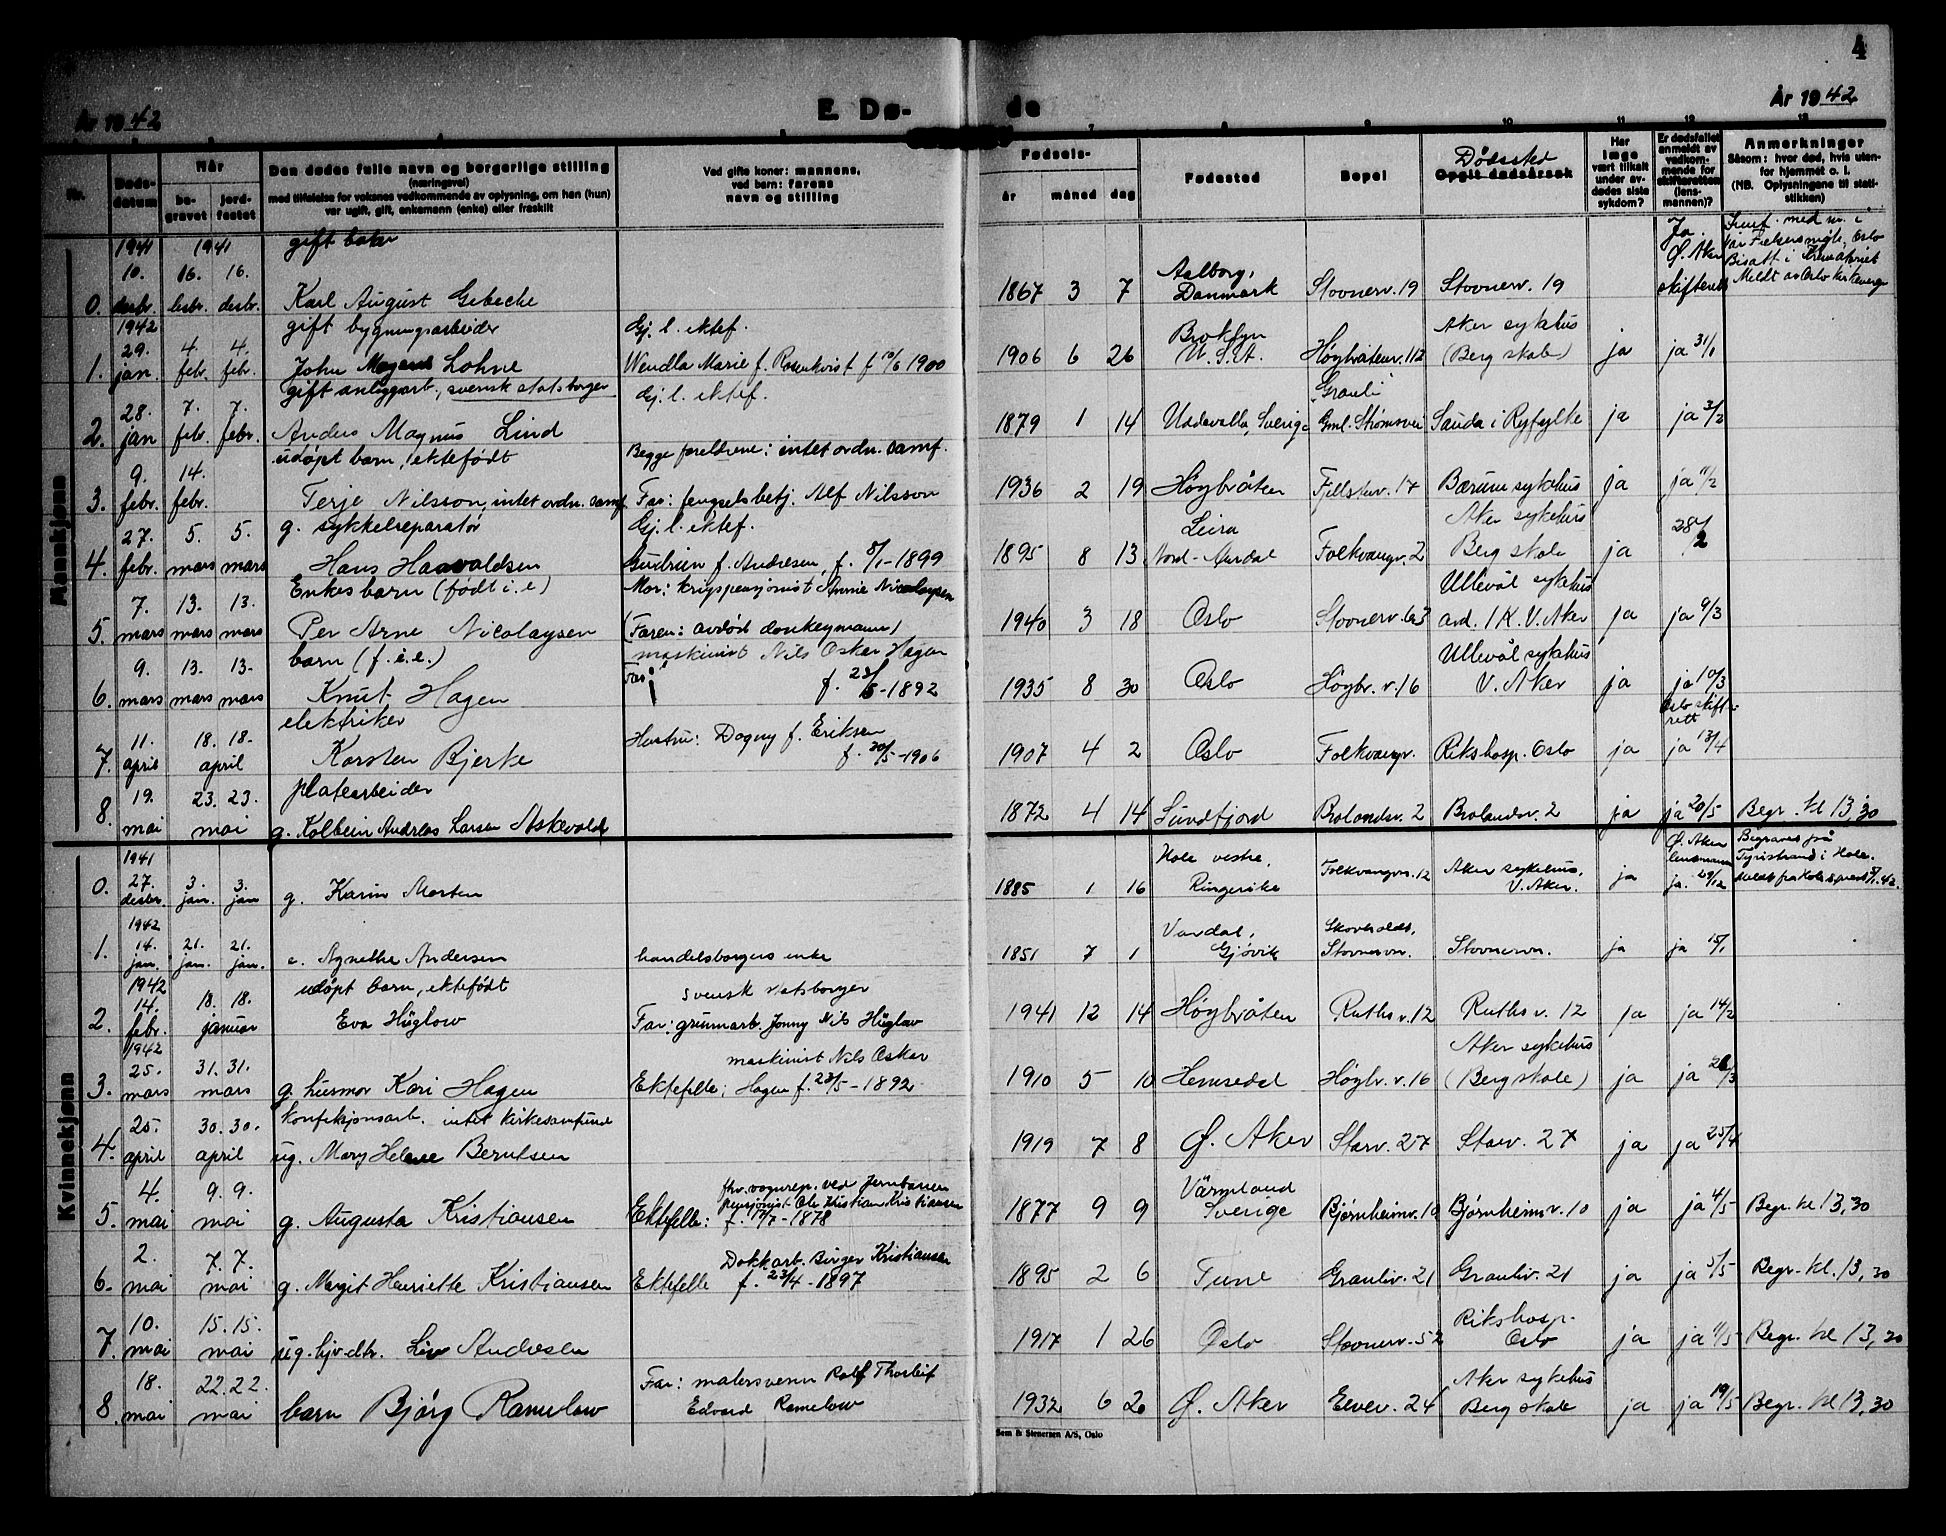 4
År 1942
E. Dø-
de
År 1942
7 8 9 10 11 12 13
Nr.
Døds-
datum
Når
be-
gravet
jord-
festet
Den dødes fulle navn og borgerlige stilling
(næringsvei)
med tilføielse for voksnes vedkommende av oplysning, om han (hun)
var ugift, gift, enkemann (enke) eller fraskilt
Ved gifte koner: mannens,
ved barn: farens
navn og stilling
Fødsels-
år måned dag
Fødested
Bopel
Dødssted
Opgit dødsårsak
Har
læge
vært tilkalt
under av-
dødes siste
sykdom?
Er dødsfallet
anmeldt av
vedkom-
mende for
skifteretten
(lens-
mannen)?
Anmerkninger
Såsom: hvor død, hvis uten-
for hjemmet o. l.
(NB. Oplysningene til stati-
stikken)
Mannkjønn
1941 1941 gift
10. 16. 16.
0. desbr. desbr. desbr. Karl August Gebecke
1867 3 7 Aalborg, Danmark Stovnerv. 19 Stovnerv. 19
Ja. Ø. Aker skifterett
Bisatt i Krematoriet
Meldt av Oslo kirkeverge
1942 gift bygningsarbeider Gj. l. ektef.
29. 4. 4.
1. jan. febr. febr. John Lohne Wendla Marie f. Rosenkvist f 10/6 1900
1906 6 26 Broklyn U.S.A. Høybråtenv. 112 Aker sykehus (Berg skole) ja ja 31/1
gift anleggarb., svensk statsborger Gj. l. ektef.
28. 7. 7.
2. jan febr. febr. Anders Magnus Lind
1879 1 14 Uddevalla, Sverige "Granli" Gml. Strømsvei Sauda i Ryfylke ja ja 3/2
udøpt barn, ektefødt Begge foreldrene: intet ordn. samf.
9. 14.
3. febr. febr. Terje Nilsson, intet ordn. samf. Far: fengselsbetj. Alf Nilsson
1936 2 19 Høybråten Fjellstuv. 17 Bærum sykehus ja ja 11/2
27. 5. 5. g. sykkelreparatør Gj. l. ektef.
4. febr. mars mars Hans Haavaldsen f. Andresen, f. 5/1-1899
1895 8 13 Leira Nord-Aurdal Folkvangv. 2 Aker sykehus Berg skole ja 28/2
Enkes barn (født i. e) Mor: krigspensjonist Annie Nicolaysen
7. 13. 13.
5. mars mars mars Per Arne Nicolaysen (Faren: avdød donkeymann)
1940 3 18 Oslo Stovnerv. 63 Ullevål sykehus avd. 1 K. V. Aker ja ja 9/3
9. 13. 13. barn (f. i. e.) maskinist Nils Oskar Hagen
6. mars mars mars Knut Hagen Far: f. 23/5-1892
1935 8 30 Oslo Høybr. v. 16 Ullevål sykehus V. Aker ja ja 10/3
elektriker
11. 18. 18.
7. april april Karsten Bjerke Hustru: Dagny f. Eriksen f. 20/5-1906
1907 4 2 Oslo Folkvangv. Rikshosp. Oslo ja Oslo skifterett ja 13/4
19. 23. 23. platearbeider
8. mai mai g. Kolbein Andreas Larsen Askevold
1872 4 14 Sundfjord Brolandsv. 2 Brolandsv. 2 ja ja 20/5 Begr. kl 13,30
Kvinnekjønn
1941
27. 3. 3.
0. desbr. jan. jan g. Karin Morten
1885 1 16 Hole vestre, Ringerike Folkvangvn. 12 Aker sykehus, V. Aker. ja Ø. Aker lensmann ja. 29/12
Begraves på
Tyristrand i Hole.
1942
14. 21. 21.
1. jan. jan. jan. e. Agnethe Andersen handelsborgers enke
1851 7 1 Vardal, Gjøvik Skoveholdt, Stovnervn. Stovnervn. ja ja 15/1
1942 udøpt barn, ektefødt svensk statsborger
14. 18. 18.
2. febr. januar Eva Höglow Far: grunnarb. Jonny Nils Höglow
1941 12 14 Høybråten Ruths v. 12 Ruths v. 12 ja ja 14/2
1942 maskinist Nils Oskar
25. 31. 31.
3. mars mars g. husmor Kari Hagen Ektefelle: Hagen f. 23/5-1892
1910 5 10 Hemsedal Høybr. v. 16 Aker sykehus (Berg skole) ja ja 26/3
konfeksjonsarb. intet kirkesamfund
25. 30. 30.
4. april april ug. Mary Helene Berntsen
1919 7 8 Ø. Aker Starv. 27 Starv. 27 ja ja 25/4
4. 9. 9. fhv. vognrep. ved Jernbanen
pensjonist Ole Kristian Kristiansen
5. mai mai g. Augusta Kristiansen Ektefelle: f. 12/7-1878
1877 9 9 Värmland Sverige Bjørnheimv. 10 Bjørnheimsv. 10 ja ja 4/5 Begr. kl 13,30
2. 7. 7. Dokkarb. Birger Kristiansen
6. mai mai g. Margit Henriette Kristiansen Ektefelle f. 23/4-1897
1895 2 6 Tune Granliv. 21 Granliv. 21 ja ja 5/5 Begr. kl. 13,30
10. 15. 15.
7. mai mai ug. hjv. dtr. Liv Andresen
1917 1 26 Oslo Stovnerv. 52 Rikshosp. Oslo ja ja 11/5 Begr. kl 13,30
18. 22. 22. Far: malersvenn Rolf Thorleif
8. mai mai barn Bjørg Ramelow Edvard Ramelow
1932 6 20 Ø. Aker Elvev. 24 Aker sykehus Berg skole ja ja 19/5 Begr. kl 13,30
Sem & Stenersen A/S, Oslo